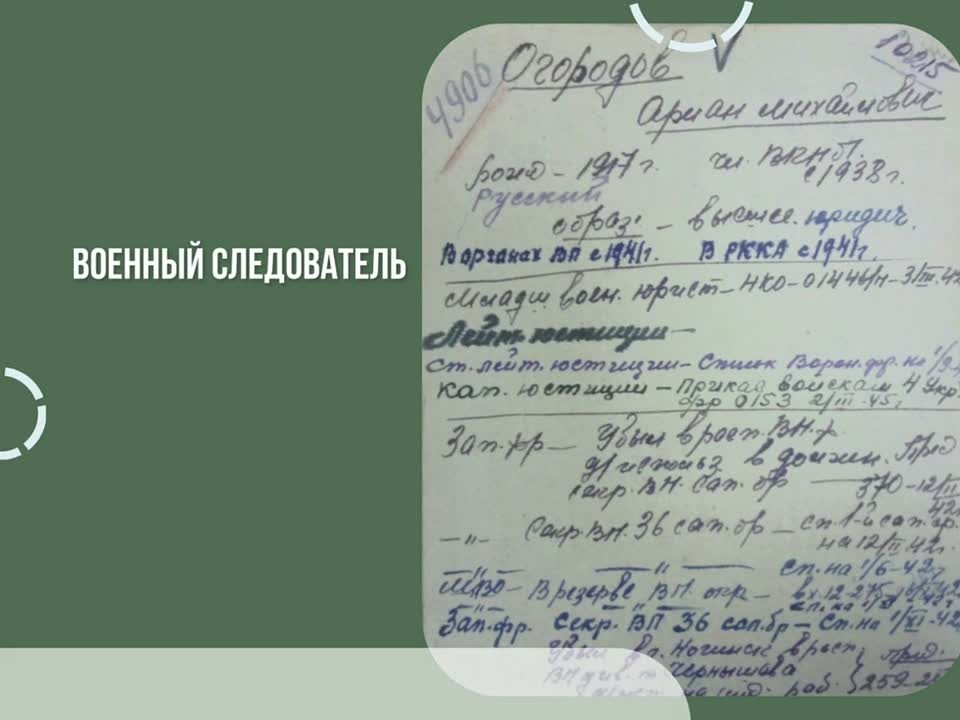 ВОЕННЫЙ СЛЕДОВАТЕЛЬ
4906 Огородов 10215
Михайлович
рожд - 1917 г. чл. ВКП(б).
с 1938 г.
Русский
образ. - высшее юридич.
В органах ВП с 1941 г. В РККА с 1941 г.
Младш воен. юрист - НКО - 01446/п - 31/III-42
Лейт. юстиции -
Ст. лейт. юстиции - Список Ворон. фр. на 1/9
Кап. юстиции - приказ войскам 4 Укр
фр 0153 2/III-45 г
Зап. фр - Убыл в расп.
в должн.
секр. сап. бр - 370 - 12/II
42г
-"- Секр. 36 сап. бр - сп. 1-й сап. ар.
на 12/II 42 г.
-"- -"- сп. на 1/6-42 г
МВО - В резерве ВП окр -
Зап. фр. Секр. ВП 36 сап. бр - сп. на 1/XI-42
Убыл в расп.
Чернышова
259